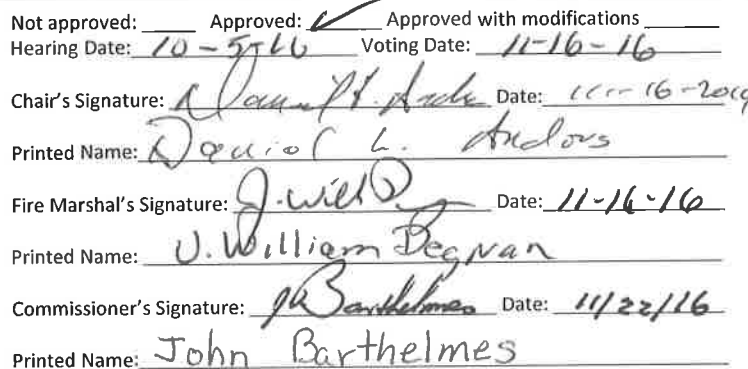 Not approved: ____ Approved: ✓ Approved with modifications ____
Hearing Date: 10-5-16 Voting Date: 11-16-16
Chair's Signature: Date: 16-
Printed Name: Daniel L. Andors
Fire Marshal's Signature: J. Will Date: 11-16-16
Printed Name: J. William Degnan
Commissioner's Signature: Barthelmes Date: 11/22/16
Printed Name: John Barthelmes